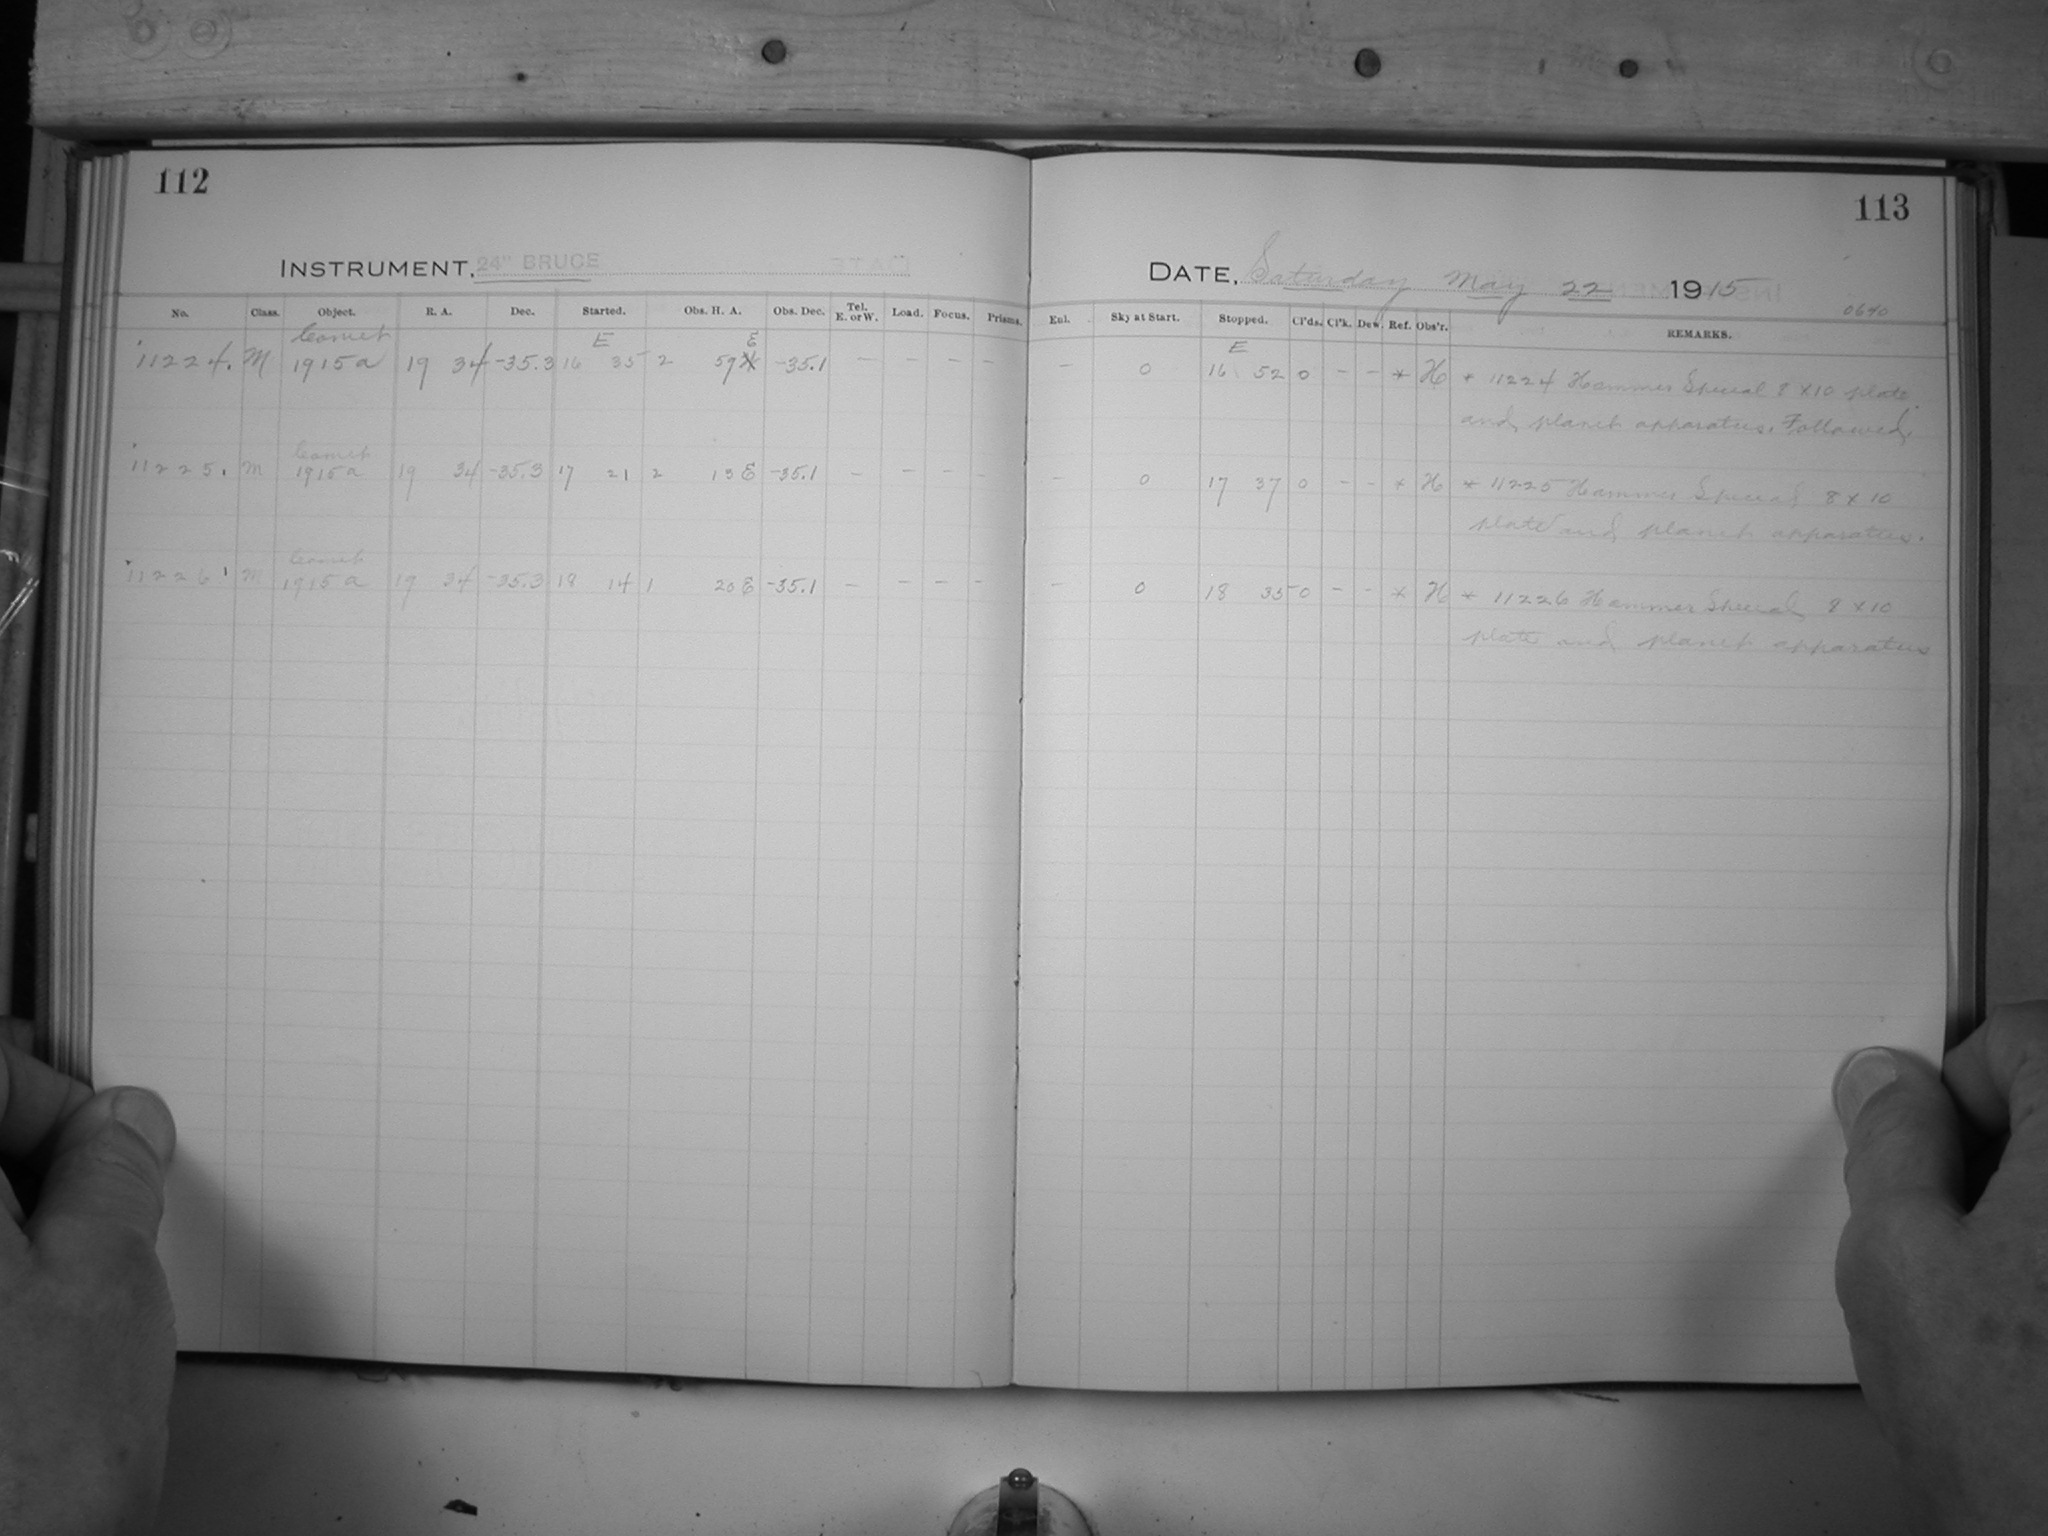 112
113
INSTRUMENT, 24" BRUCE
DATE, Saturday May 22 1915
0640
No. Class. Object. R. A. Dec. Started. Obs. H. A. Obs. Dec. Tel. E. or W. Load. Focus. Prisms.
Eul. Sky at Start. Stopped. Cl'ds. Cl'k. Dew. Ref. Obs'r. REMARKS.
Comet E E E
11224. M 1915a 19 34 -35.3 16 35 2 59 -35.1 — — — — — 0 16 52 0 - - * H * 11224 Hammer Special 8 x 10 plate
and planet apparatus. Followed.
Comet
11225. M 1915a 19 34 -35.3 17 21 2 13 E -35.1 — — — — — 0 17 37 0 - - * H * 11225 Hammer Special 8 x 10
plate and planet apparatus.
Comet
11226 M 1915a 19 34 -35.3 18 14 1 20 E -35.1 — — — — — 0 18 35 0 - - * H * 11226 Hammer Special 8 x 10
plate and planet apparatus